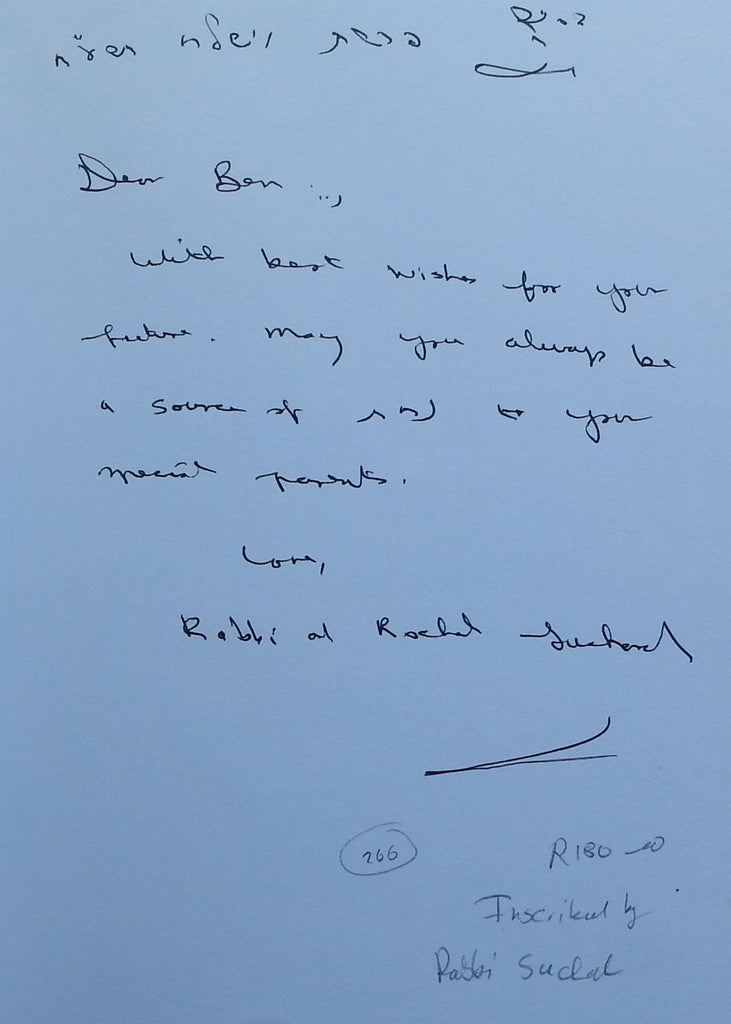 פרשת וישלח
Dear Ben ..,
With best wishes for your
future. May you always be
a source of נחת to your
special parents.
Love,
Rabbi and Rochel Suchard
266
R180-00
Inscribed by
Rabbi Suchard